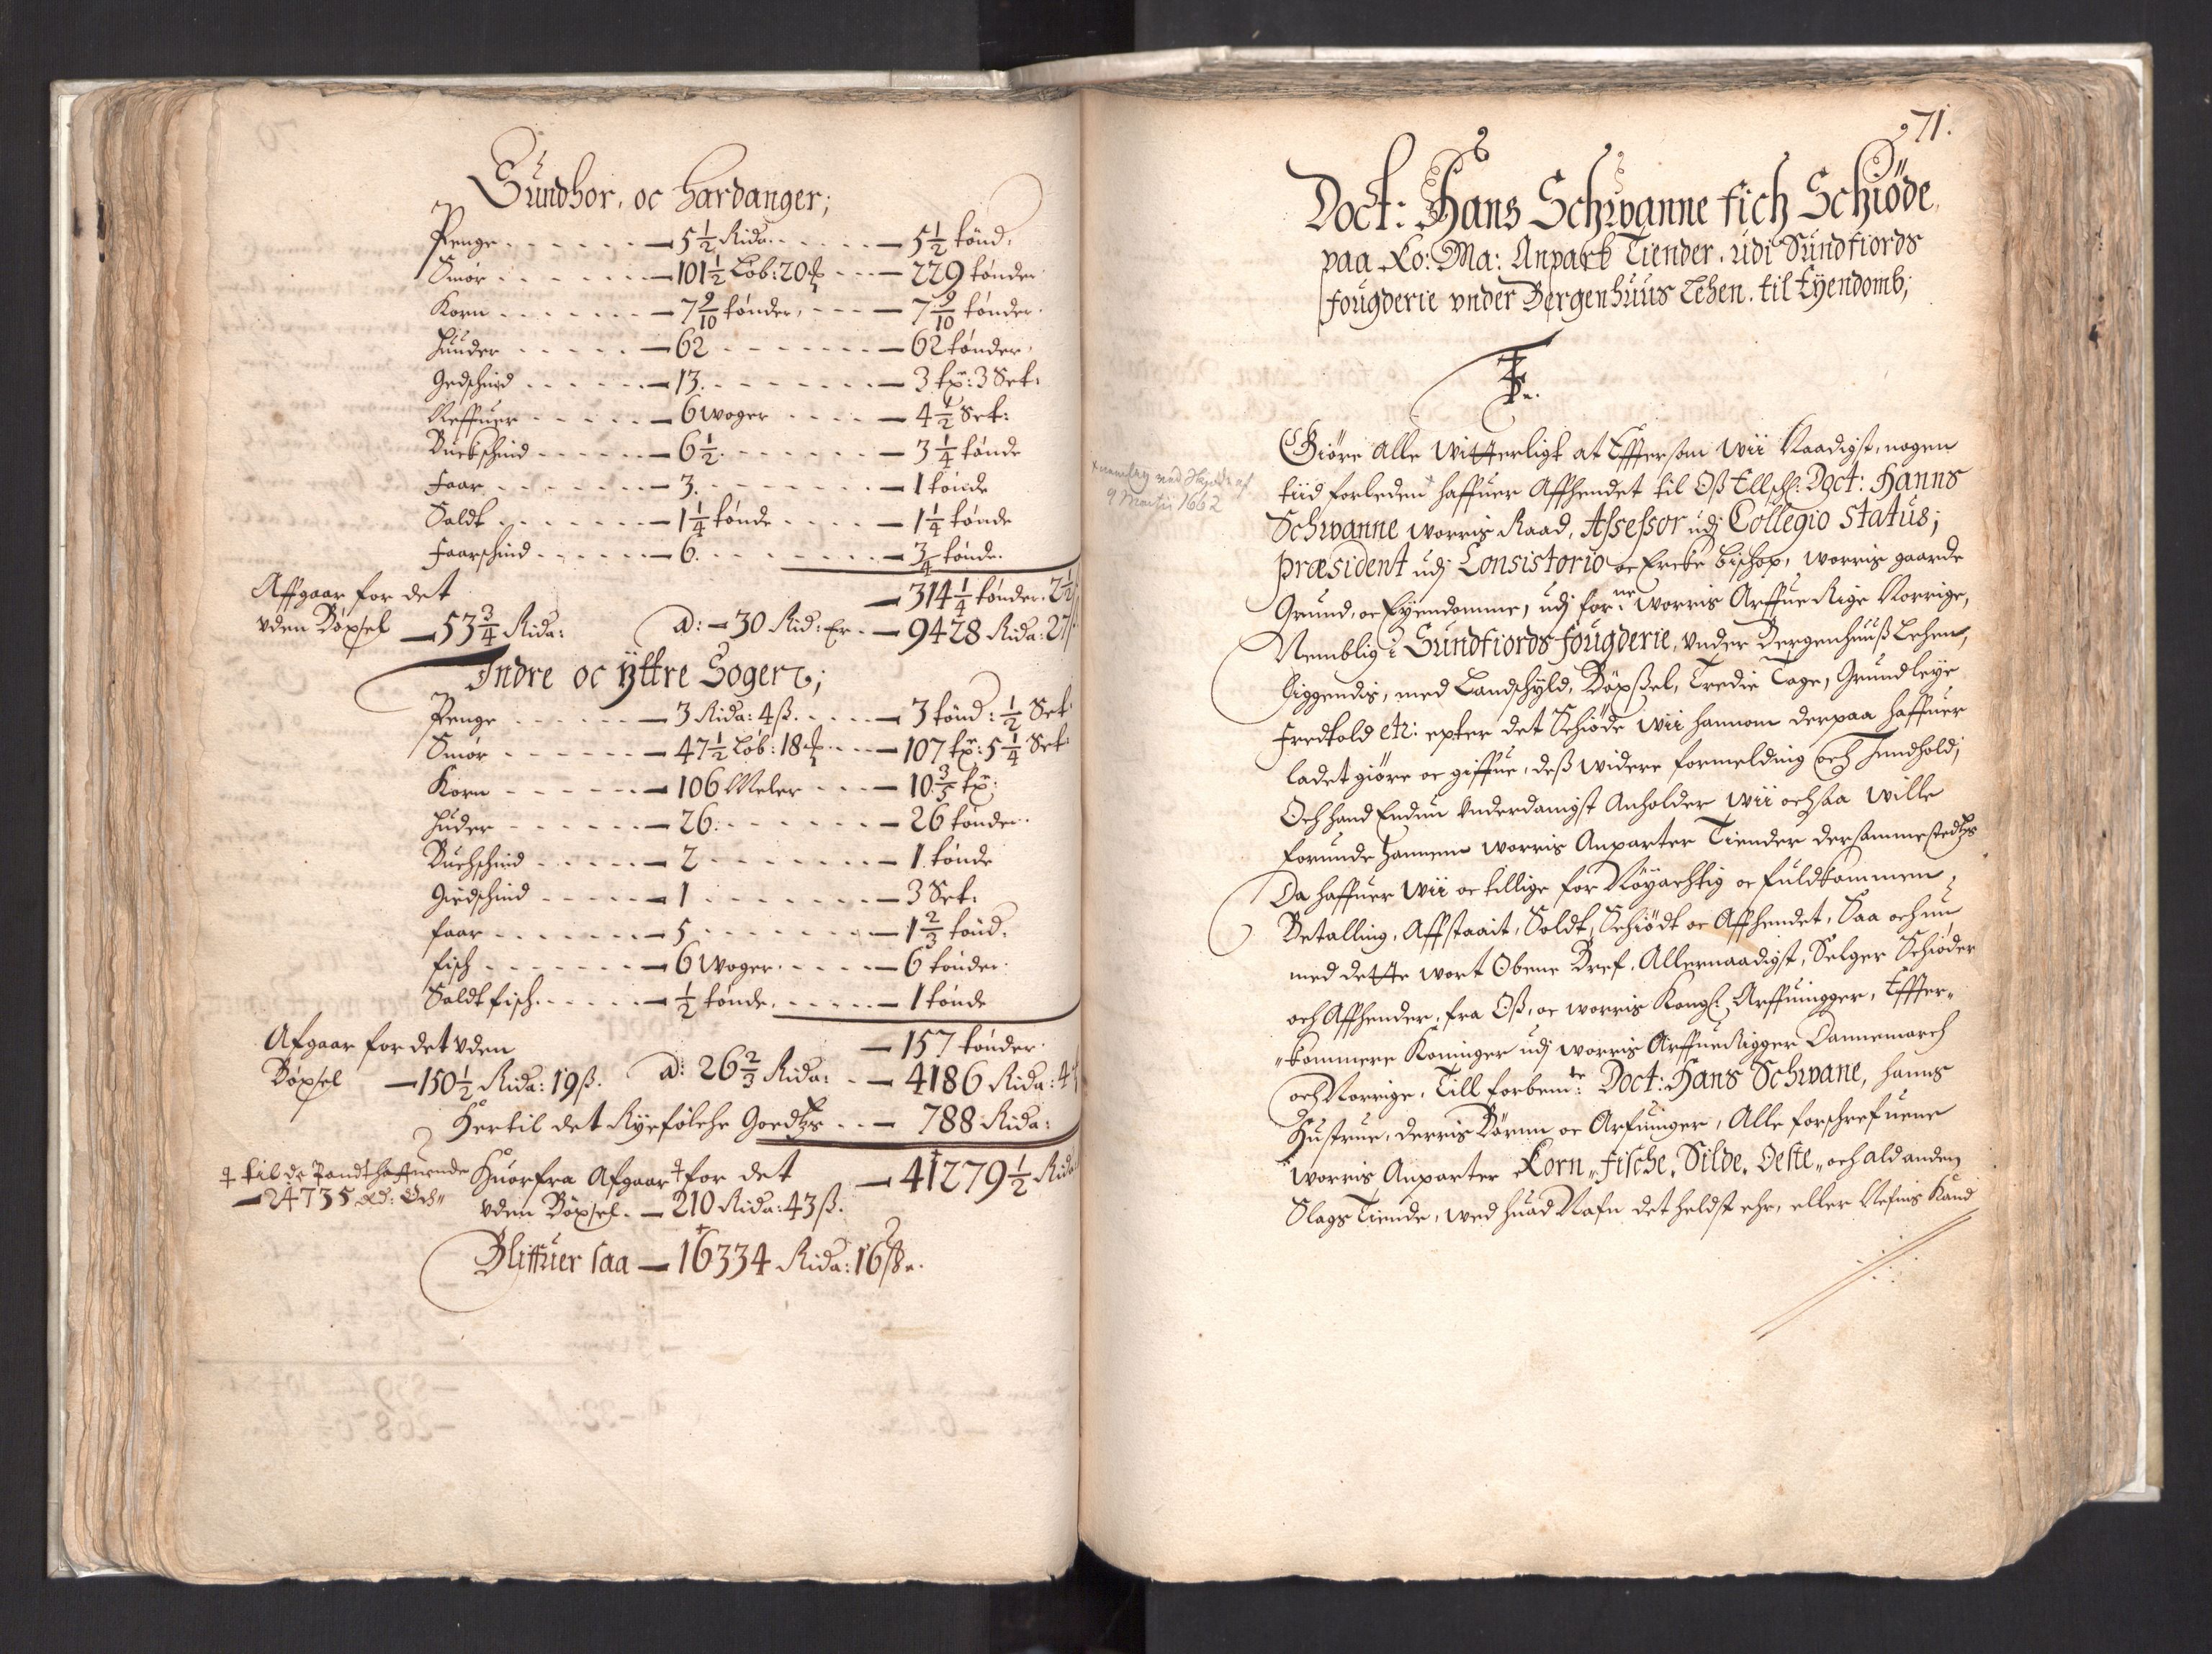 Sundhor, oc Hardanger;
Penge - - - - - - 5 1/2 Rida: - - - - - 5 1/2 tønd:
Smør - - - - - - 101 1/2 Løb: 20 ℔ - - - 229 tønder
Korn - - - - - - 7 9/10 tønder, - - - 7 9/10 tønder.
Huuder - - - - - 62 - - - - - - - 62 tønder.
Gedschind - - - - - 13. - - - - - - - 3 tr: 3 Set:
Neffuer - - - - - 6 woger - - - - 4 1/2 Set:
Buckschind - - - - - 6 1/2. - - - - - - - 3 1/4 tønde
Faar - - - - - - 3. - - - - - - - 1 tønde
Saldt - - - - - - 1 1/4 tønde - - - - 1 1/4 tønde
Faarschind - - - - - 6. - - - - - - - 3/4 tønde.
Affgaar for det — 314 1/4 tønder. 2 1/2
vden Böxsel — 53 3/4 Rida: a: — 30 Rid: Er. — 9428 Rida: 27
Indre oc Yttre Sogen;
Penge - - - - - - 3 Rida: 4 ß. - - - - 3 tønd: 1/2 Set:
Smør - - - - - - 47 1/2 Løb: 18 ℔ - - - 107 tr: 5 1/4 Set
Korn - - - - - - 106 Meler - - - 10 3/5 tr:
Huder - - - - - - 26. - - - - - - - 26 tønder.
Buchschind - - - - - 2 - - - - - - - 1 tønde
Giedschind - - - - - 1 - - - - - - - 3 Set:
faar - - - - - - 5 - - - - - - - 1 2/3 tønd.
fisch - - - - - - 6 Woger. - - - - 6 tønder.
Saldt fisch. - - - - - 1/2 tønde. - - - - - 1 tønde
Afgaar for det vden — 157 tønder.
Böxsel — 150 1/2 Rida: 19 ß. a: 26 2/3 Rida: - - 4186 Rida: 4
Hertil det Ryefölche Goedtzs - - — 788 Rida:
‡ til de Pandthaffuende Huorfra Afgaar ‡ for det — 41279 1/2 Rida
— 24735 Rd: Och vden Böxsel. — 210 Rida: 43 ß.
Bliffuer saa — 16334 Rida: 16 ß.
71.
Doct: Hans Schwanne fich Schiöde
paa Ko: Ma: Anpart Tiender, udi Sundfiords
fougderie vnder Bergenhuus Lehen. til Eyendomb;
F.
Giöre Alle Witterligt at Effterson Wii Naadigst, nogen
tiid forleden haffuer Affhendet til Oß Ellschl: Doct: Hanns
Schwanne worris Raad, Assessor udj Collegio Status;
Præsident udj Consistorio oc Ercke Bischop, worris gaarde
Grund, oc Eyendomme, udj forne: worris Arffue Rige Norrige,
Nemblig i Sundfiords fougderie, vnder Bergenhuuß Lehen,
liggendis, med Landschyld, Böxßel, Tredie Tage, Grundleye
Fredtold etc: epter det Schiöde Wii hannom derpaa haffuer
ladet giöre oc giffue, deß widere formelding och Inndhold;
Och hand Endnu Vnderdanigst Anholder Wii ochsaa Wille
forunde hannem worris Anparter Tiender dersammestedtzs
Da haffuer Wii oc tillige for Nöyachtig oc fuldkommen,
Betalling, Affstaait, Soldt, Schiödt oc Affhendet, Saa och nu
med dette wort Obene Bref, Allernaadigst, Selger Schiöder
och Affhender, fra Oß, oc worris Kongl: Arffuingger, Effter-
-kommere Koninger udj worris Arffue Rigger Dannemarch
och Norrige, Till forbemte: Doct: Hans Schwane, hanns
Hustrue, derris Börnn oc Arfuinger, Alle forschrefuene
Worris Anparter Korn, Fische, Silde, Oeste, och ald anden
Slags Tiende, wed huad Nafn det heldst ehr, eller Nefnis Kand
x nemlig ved Skjøde af
9 Martii 1662